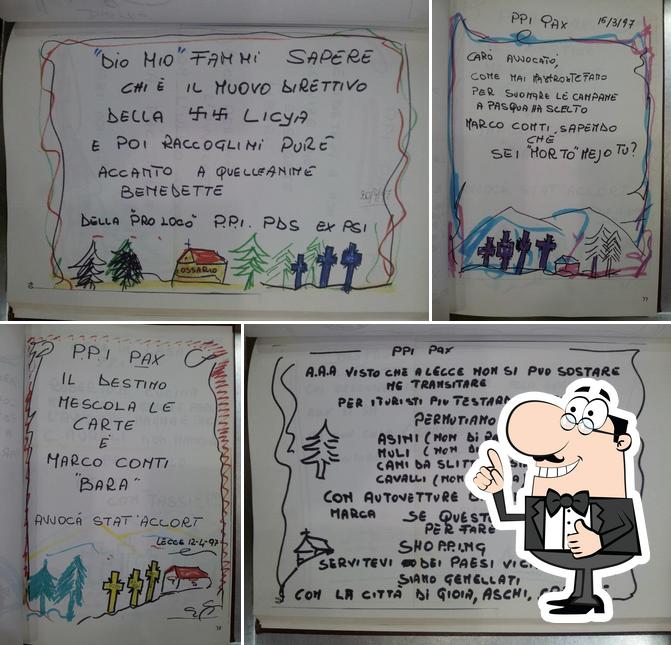 "DIO MIO" FAMMI SAPERE
CHI È IL NUOVO DIRETTIVO
DELLA 卐卐 LICYA
E POI RACCOGLINI PURE
ACCANTO A QUELLE ANIME
BENEDETTE
DELLA "PRO LOCO" P.P.I. PDS EX PSI
OSSARIO
PPI PAX 15/3/97
CARO AVVOCATO,
COME MAI
PER SUONARE LE CAMPANE
A PASQUA HA SCELTO
MARCO CONTI, SAPENDO
CHE
SEI "MORTO" MEJO TU?
77
P.P.I PAX
IL DESTINO
MESCOLA LE
CARTE
E
MARCO CONTI
"BARA"
AVVOCÀ STAT'ACCORT
LECCE 12-4-97
78
PPI PAX
A.A.A VISTO CHE A LECCE NON SI PUÒ SOSTARE
NE TRANSITARE
PER I TURISTI PIÙ TESTAR
PERMUTIAMO
ASINI (NON DI
MULI (NON DI
CANI DA SLITT
CAVALLI (NON
CON AUTOVETTURE
MARCA SE QUEST
PER FARE
SHOPPING
SERVITEVI DEI PAESI VIC
SIAMO GEMELLATI
CON LA CITTÀ DI GIOIA, ASCHI,